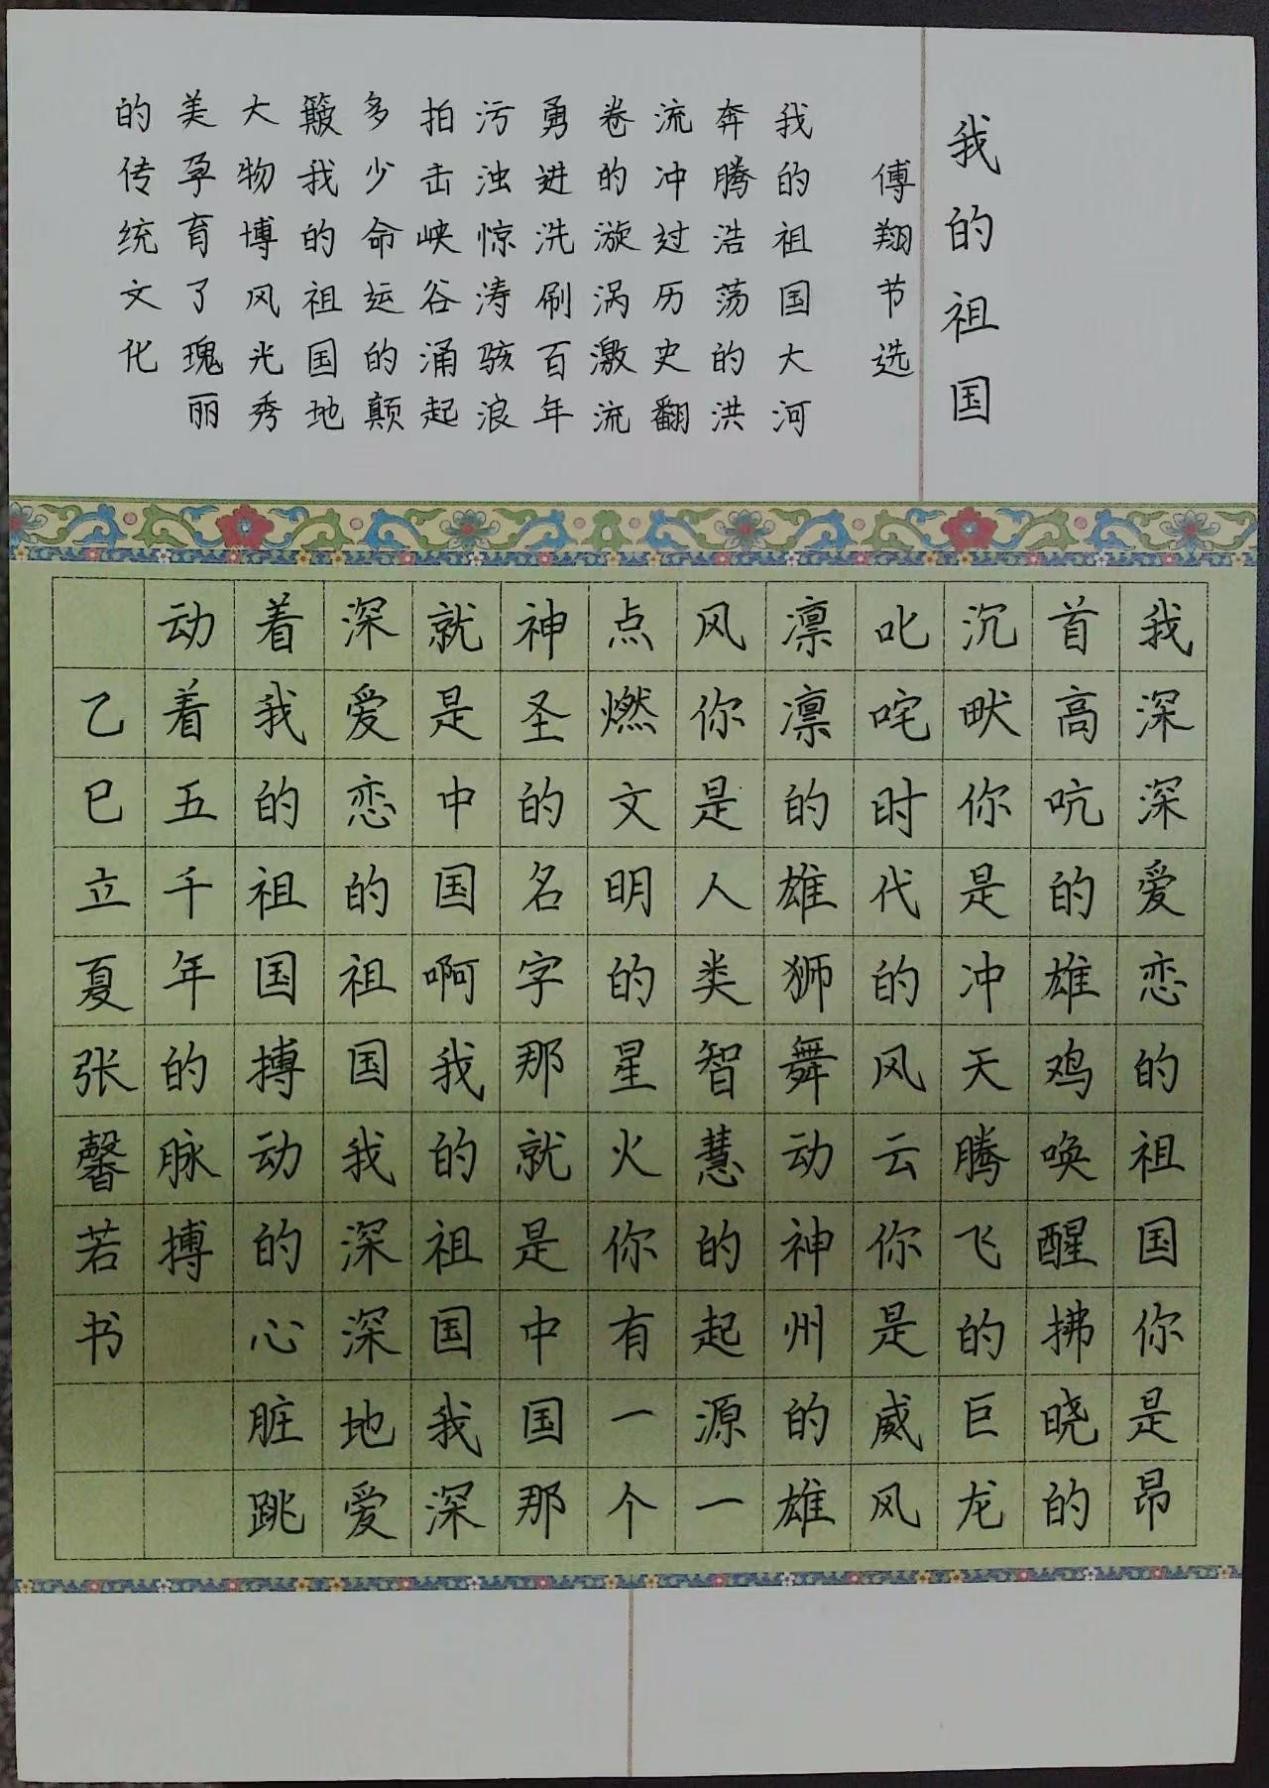 我的祖国
傅翔节选
我的祖国大河
奔腾浩荡的洪
流冲过历史翻
卷的漩涡激流
勇进洗刷百年
污浊惊涛骇浪
拍击峡谷涌起
多少命运的颠
簸我的祖国地
大物博风光秀
美孕育了瑰丽
的传统文化
我深深爱恋的祖国你是昂
首高吭的雄鸡唤醒拂晓的
沉畎你是冲天腾飞的巨龙
叱咤时代的风云你是威风
凛凛的雄狮舞动神州的雄
风你是人类智慧的起源一
点燃文明的星火你有一个
神圣的名字那就是中国那
就是中国啊我的祖国我深
深爱恋的祖国我深深地爱
着我的祖国搏动的心脏跳
动着五千年的脉搏
乙巳立夏张馨若书